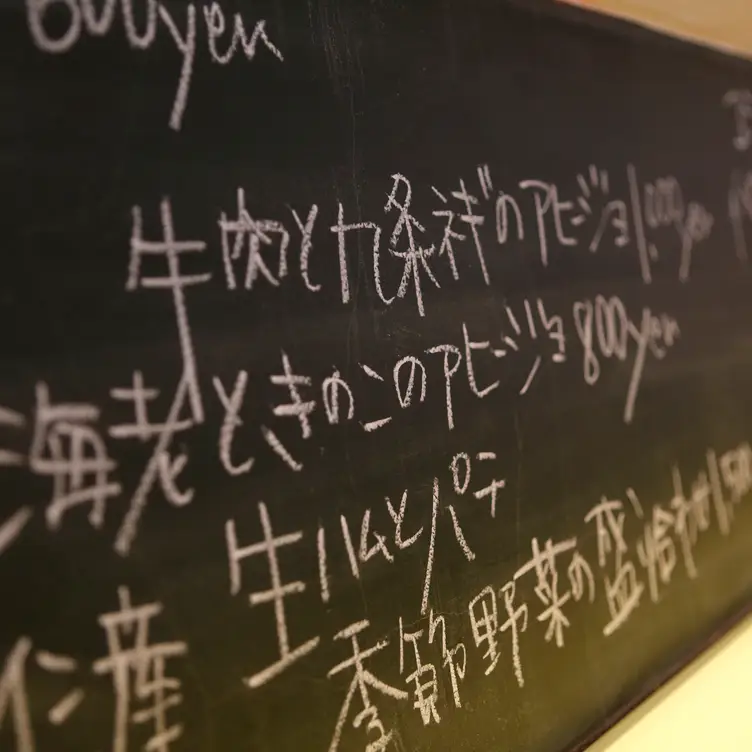 600yen
牛肉と九条ネギのアヒージョ 1,000yen
海老ときのこのアヒージョ 800yen
生ハムとパテ
季節野菜の盛合わせ
産